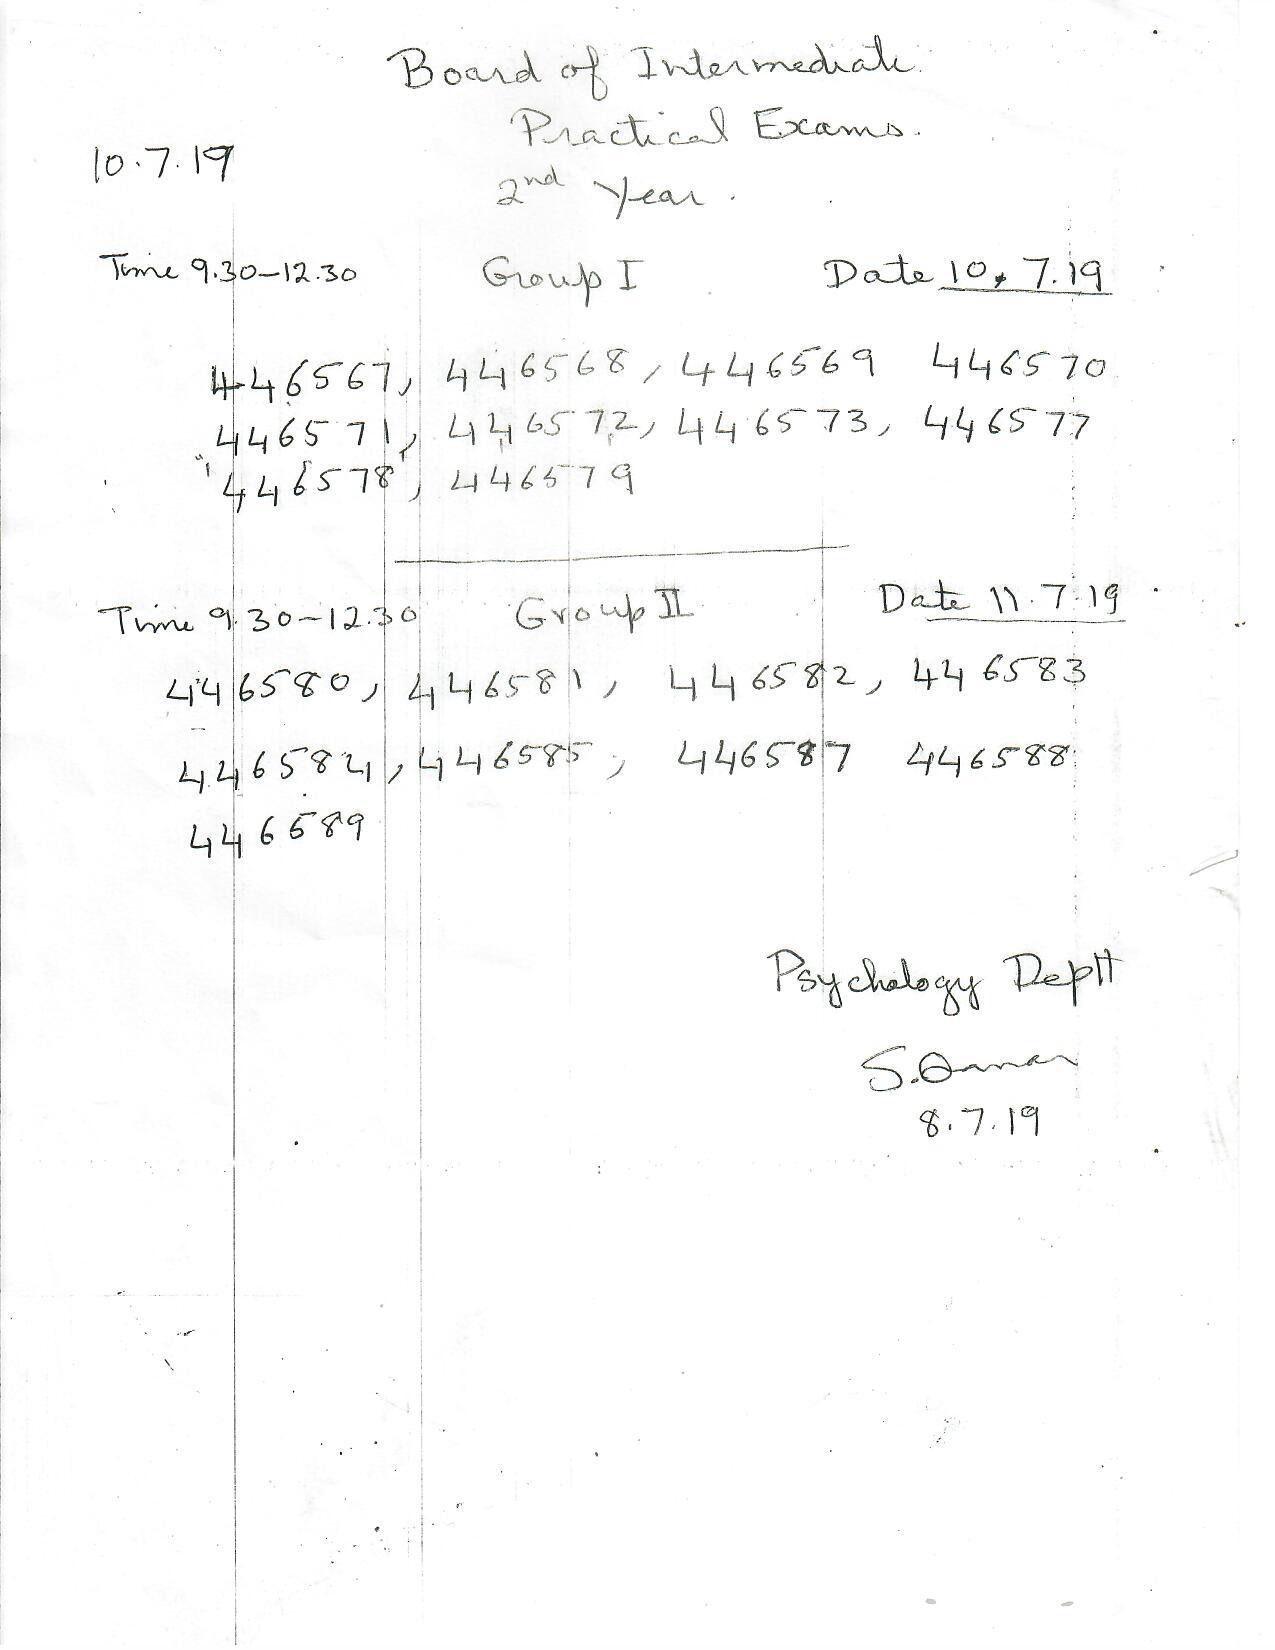 Board of Intermediate
Practical Exams.
10.7.19
2nd Year.
Time 9.30-12.30 Group I Date 10.7.19
446567, 446568, 446569 446570
446571, 446572, 446573, 446577
446578, 446579
Time 9.30-12.30 Group II Date 11.7.19
446580, 446581, 446582, 446583
446584, 446585, 446587 446588
446589
Psychology Deptt
8.7.19